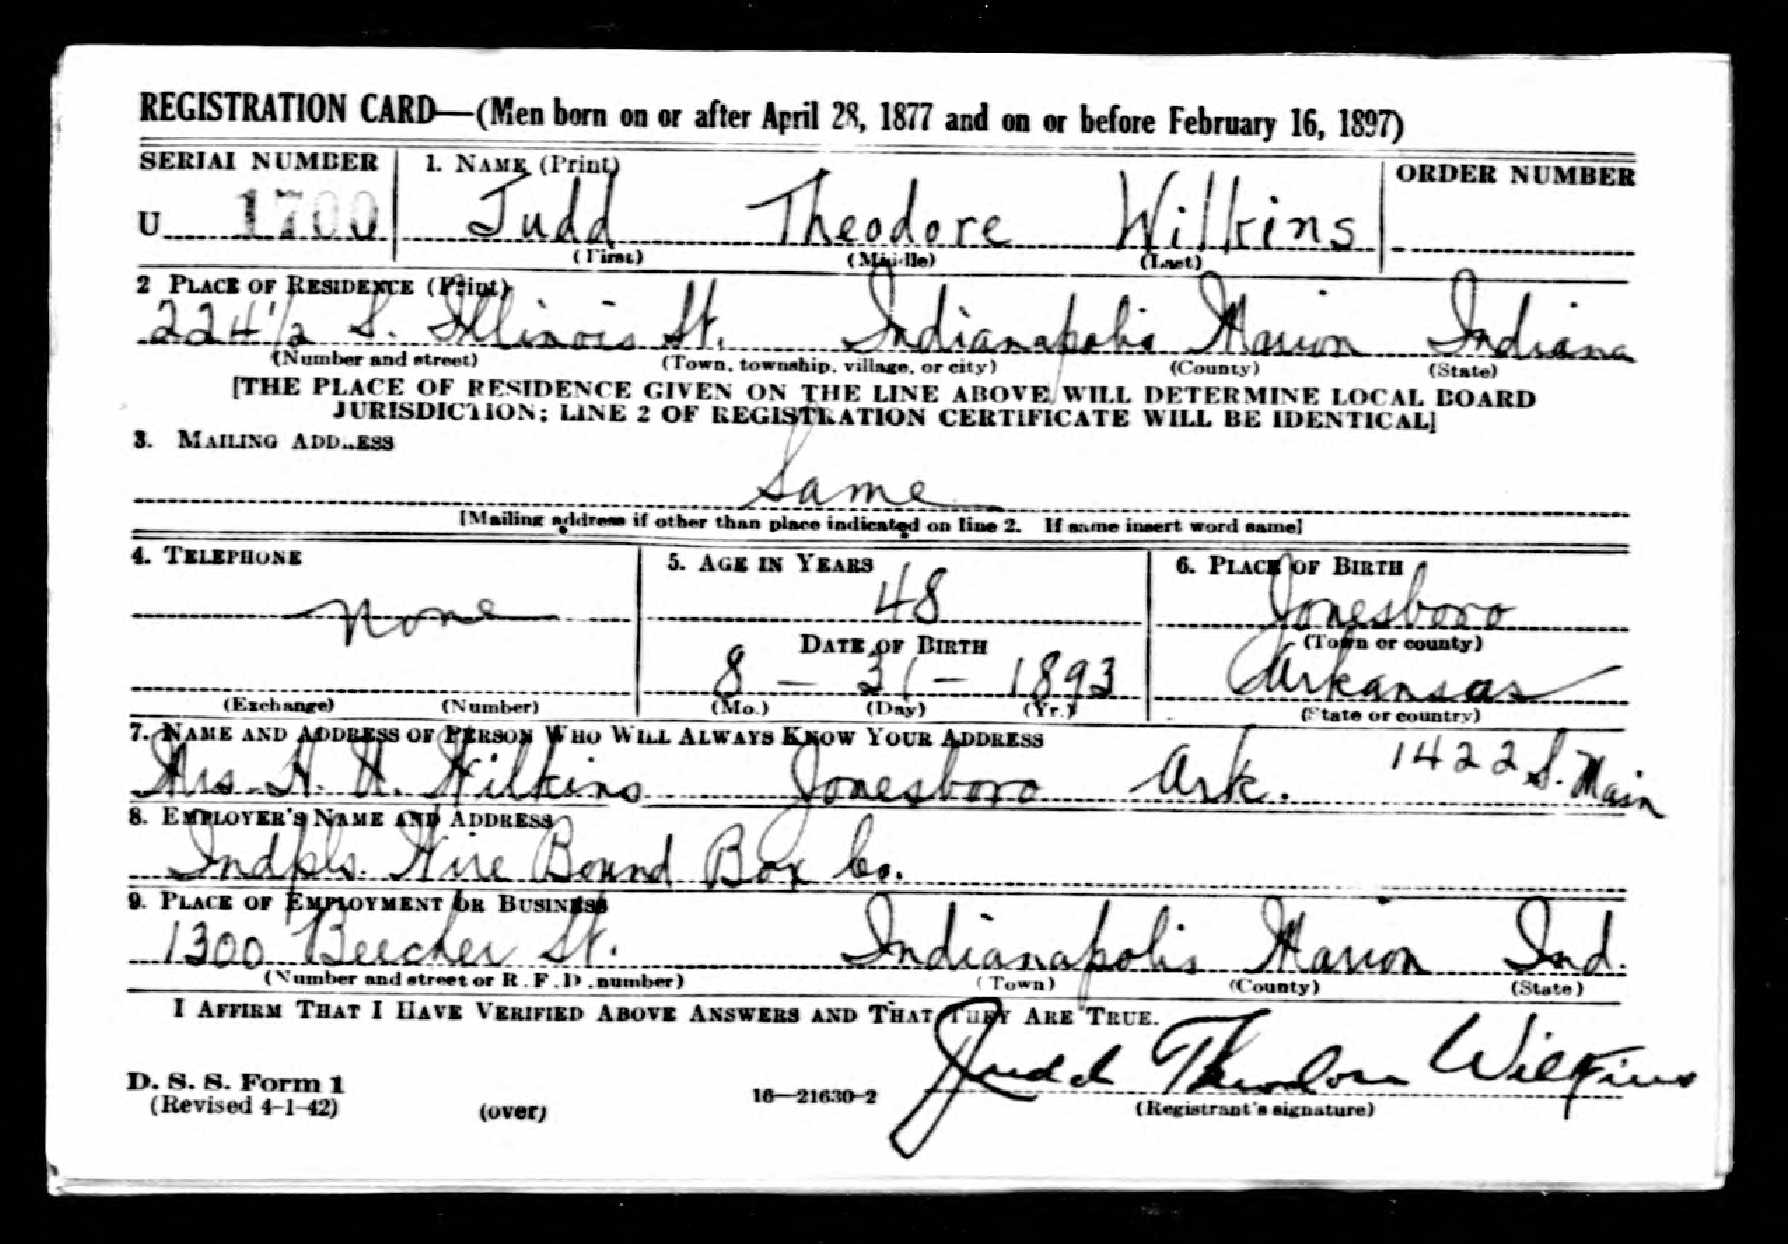 REGISTRATION CARD—(Men born on or after April 28, 1877 and on or before February 16, 1897)
SERIAL NUMBER 1. NAME (Print) ORDER NUMBER
U 1700 Judd Theodore Wilkins
(First) (Middle) (Last)
2 PLACE OF RESIDENCE (Print)
224 1/2 S. Illinois St. Indianapolis Marion Indiana
(Number and street) (Town, township, village, or city) (County) (State)
[THE PLACE OF RESIDENCE GIVEN ON THE LINE ABOVE WILL DETERMINE LOCAL BOARD
JURISDICTION; LINE 2 OF REGISTRATION CERTIFICATE WILL BE IDENTICAL]
3. MAILING ADDRESS
Same
[Mailing address if other than place indicated on line 2. If same insert word same]
4. TELEPHONE 5. AGE IN YEARS 6. PLACE OF BIRTH
None 48 Jonesboro
DATE OF BIRTH (Town or county)
8 — 31 — 1893 Arkansas
(Exchange) (Number) (Mo.) (Day) (Yr.) (State or country)
7. NAME AND ADDRESS OF PERSON WHO WILL ALWAYS KNOW YOUR ADDRESS
Mrs. H. H. Wilkins Jonesboro Ark. 1422 S. Main
8. EMPLOYER'S NAME AND ADDRESS
Indpls. Wire Bound Box Co.
9. PLACE OF EMPLOYMENT OR BUSINESS
1300 Beecher St. Indianapolis Marion Ind.
(Number and street or R. F. D. number) (Town) (County) (State)
I AFFIRM THAT I HAVE VERIFIED ABOVE ANSWERS AND THAT THEY ARE TRUE.
Judd Theodore Wilkins
D. S. S. Form 1
(Revised 4-1-42) (over) 16—21630-2 (Registrant's signature)